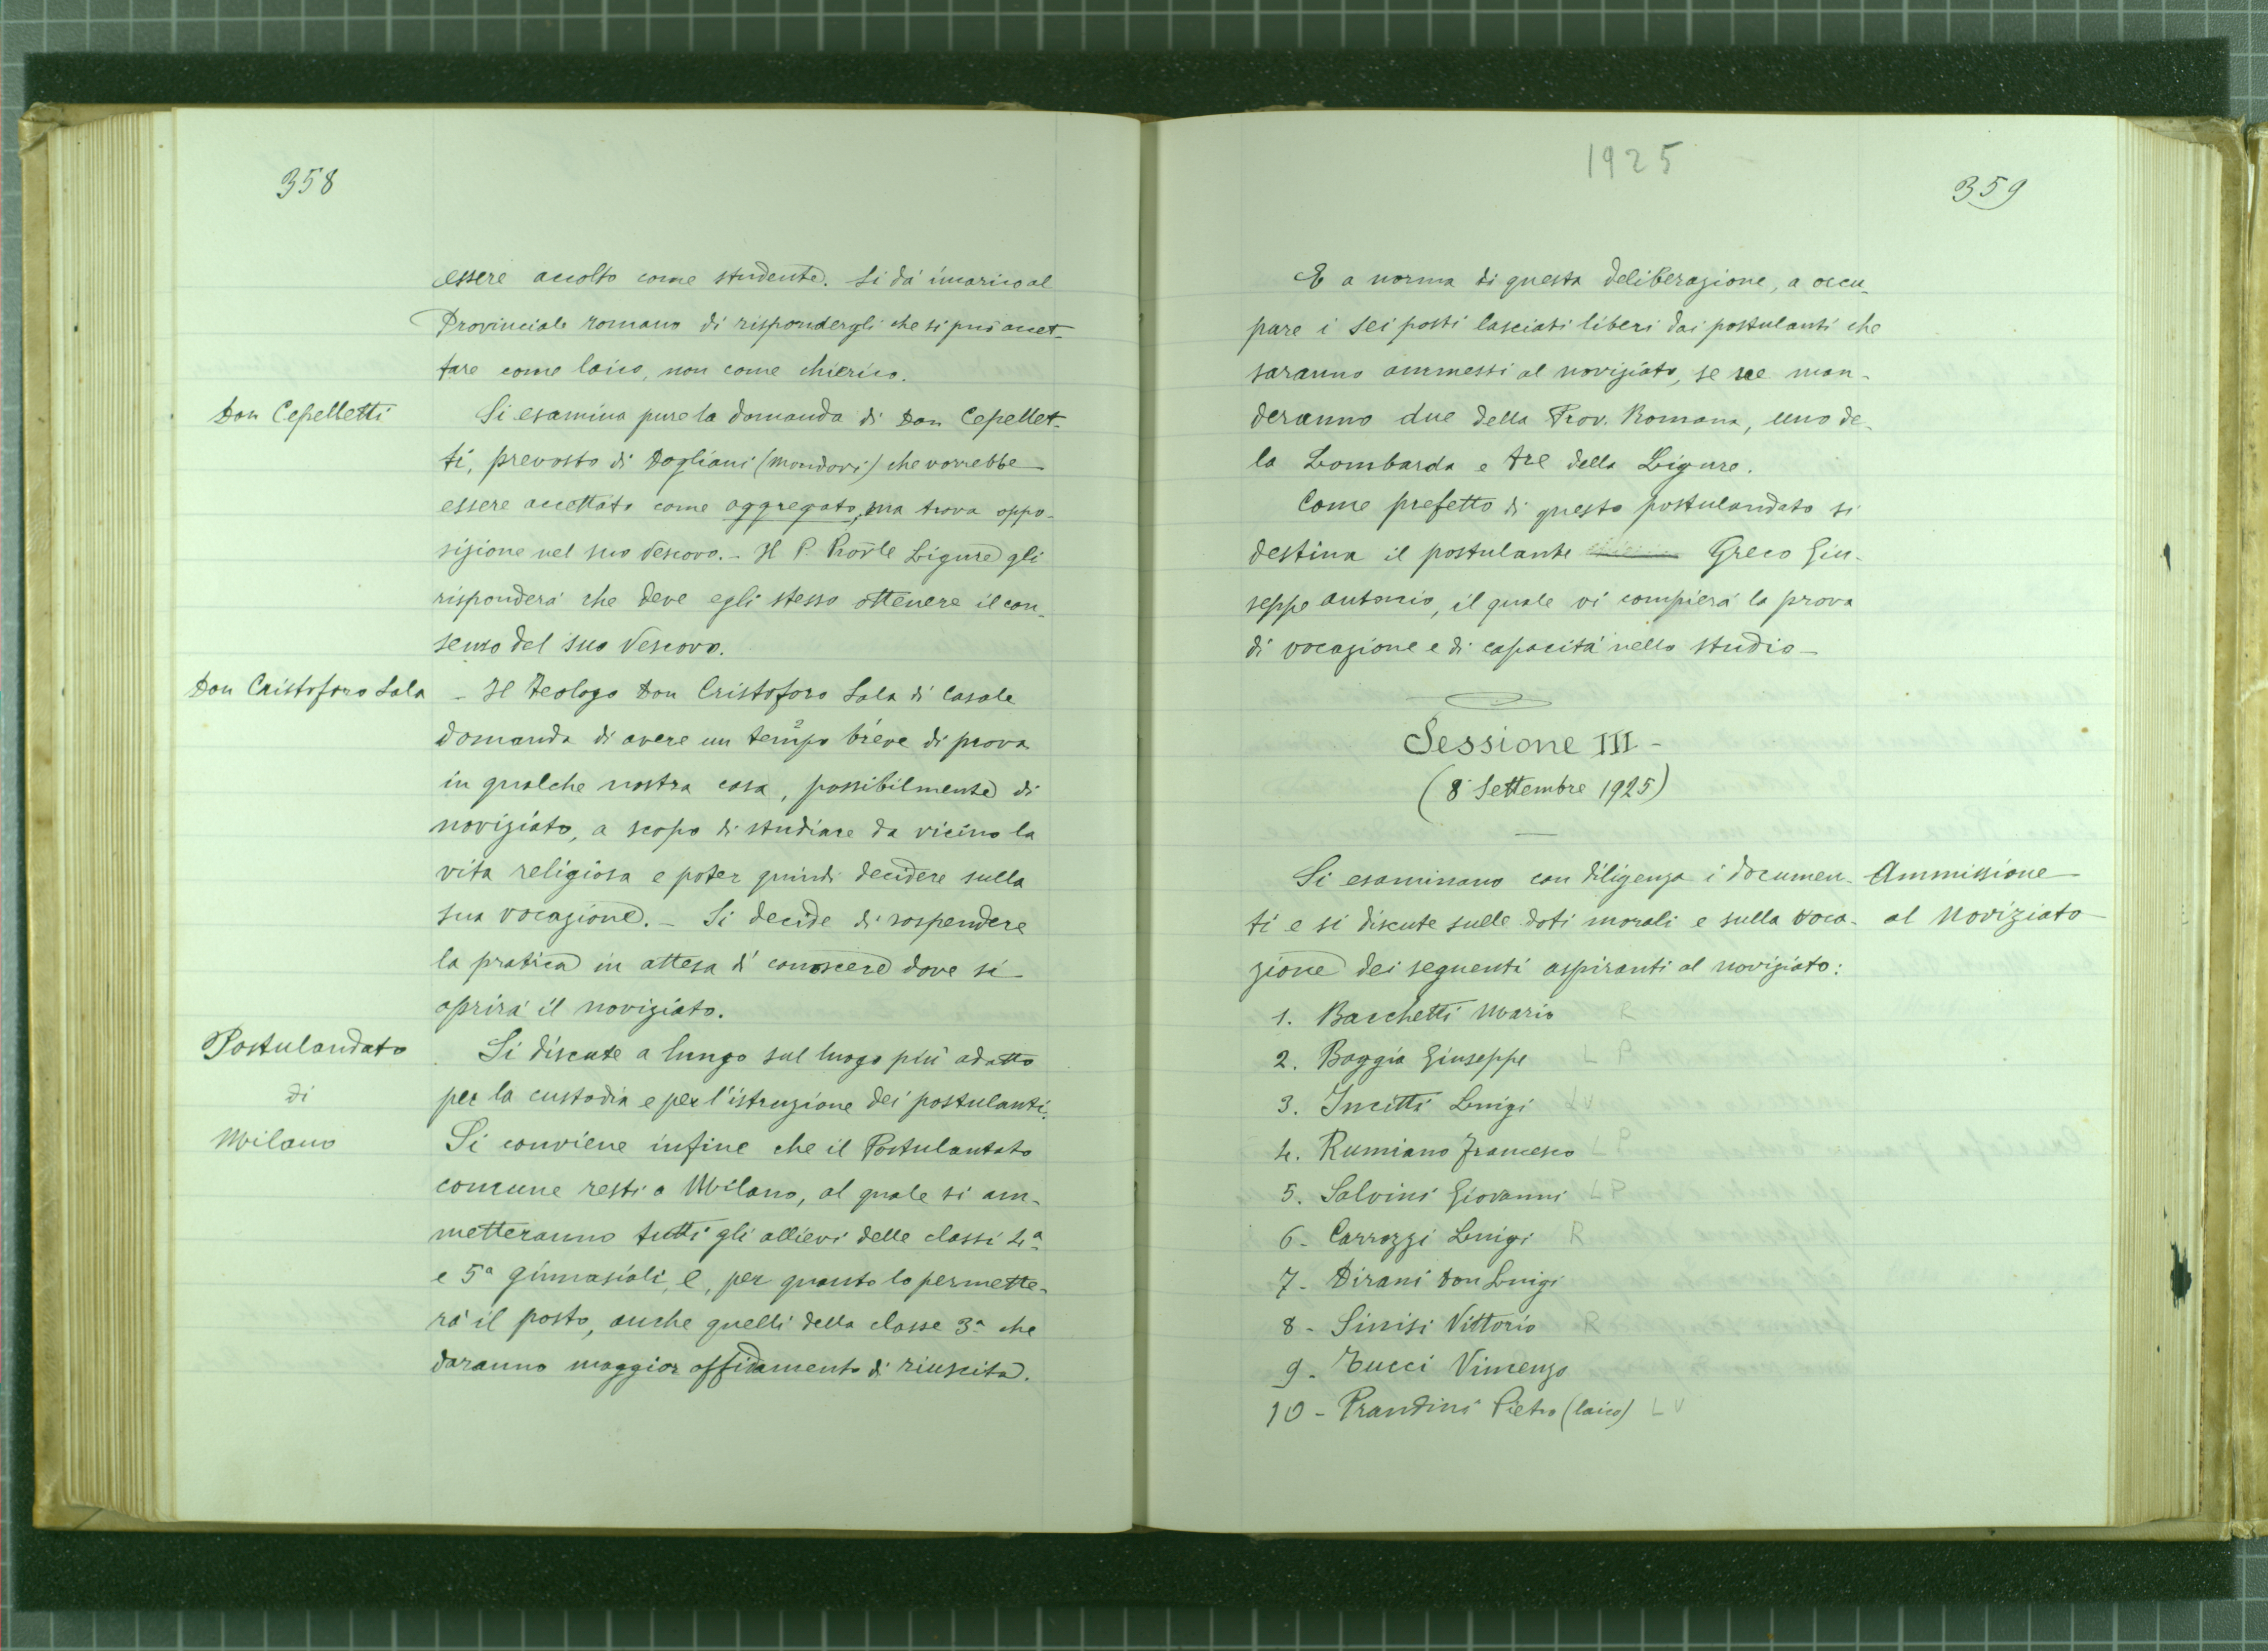 358
essere accolto come studente. Si dà incarico al
Provinciale romano di rispondergli che si può accet-
tare come laico, non come chierico.
Don Cepelletti
Si esamina pure la domanda di Don Cepellet-
ti, prevosto di Dogliani (Mondovì) che vorrebbe
essere accettato come aggregato, ma trova oppo-
sizione nel suo Vescovo. - Il P. Prov̄le Ligure gli
risponderà che deve egli stesso ottenere il con-
senso del suo Vescovo.
Don Cristoforo Sala
- Il Teologo Don Cristoforo Sala di Casale
domanda di avere un tempo breve di prova
in qualche nostra casa, possibilmente di
noviziato, a scopo di studiare da vicino la
vita religiosa e poter quindi decidere sulla
sua vocazione. - Si decide di sospendere
la pratica in attesa di conoscere dove si
aprirà il noviziato.
Postulandato
di
Milano
Si discute a lungo sul luogo più adatto
per la custodia e per l'istruzione dei postulanti.
Si conviene infine che il Postulantato
comune resti a Milano, al quale si am-
metteranno tutti gli allievi delle classi 4ª
e 5ª ginnasiali, e, per quanto lo permette-
rà il posto, anche quelli della classe 3ª che
daranno maggior affidamento di riuscita.
1925
359
E a norma di questa deliberazione, a occu-
pare i sei posti lasciati liberi dai postulanti che
saranno ammessi al noviziato, se ne man-
deranno due della Prov. Romana, uno de-
la Lombarda e tre della Ligure.
Come prefetto di questo postulandato si
destina il postulante Greco Giu-
seppe Antonio, il quale vi compierà la prova
di vocazione e di capacità nello studio -
Sessione III -
(8 Settembre 1925)
Si esaminano con diligenza i documen-
ti e si discute sulle doti morali e sulla voca-
zione dei seguenti aspiranti al noviziato:
Ammissione
al Noviziato
1. Bacchetti Mario R
2. Boggia Giuseppe L P
3. Incitti Luigi L V
4. Rumiano Francesco L P
5. Salvini Giovanni L P
6 - Carrozzi Luigi R
7 - Dirani Don Luigi
8 - Sinisi Vittorio R
9 - Tucci Vincenzo
10 - Prandini Pietro (laico) L V